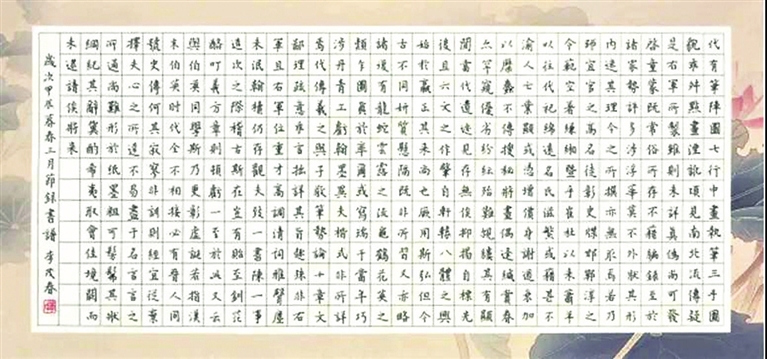 代有筆陣圖七行中畫執筆三手圖
貌乖舛點畫湮訛頃見南北流傳疑
是右軍所製雖則未詳真偽尚可發
啓童蒙既常俗所存不藉編錄至於
諸家勢評多涉浮華莫不外狀其形
內迷其理今之所撰亦無取焉若乃
師宜官之高名徒彰史牒邯鄲淳之
令範空著縑緗暨乎崔杜以來蕭羊
以往代祀綿遠名氏滋繁或藉甚不
渝人亡業顯或憑增價身謝道衰加
以糜蠹不傳搜秘將盡偶逢緘賞
亦罕窺優劣紛紜殆難覼縷其有顯
聞當代遺迹見存無俟抑揚自標先
後且六文之作肇自軒轅八體之興
始於嬴正其來尚也厥用斯弘但今
古不同妍質懸隔既非所習又亦略
諸復有龍蛇雲露之流龜鶴花英之
類乍圖真於率爾或寫瑞于當年巧
涉丹青工虧翰墨異夫楷式非所詳
焉代傳羲之與子敬筆勢論十章文
鄙理疏意乖言拙詳其旨趣殊非右
軍且右軍位重才高調清詞雅聲塵
未泯翰櫝仍存觀夫致一書陳一事
造次之際稽古斯在宜有貽
義方章則頓虧一至於此又云
與伯英同學斯乃更彰虛誕若指漢
末伯英時代全不相接必有晉人同
號史傳何其寂寥非訓則經宜從棄
擇夫心之所達不易盡于名言言之
所通尚難形於紙墨粗可髣髴其狀
綱紀其辭冀酌希夷取會佳境闕而
未逮請俟將來
歲次甲辰暮春三月節錄書譜 李茂春